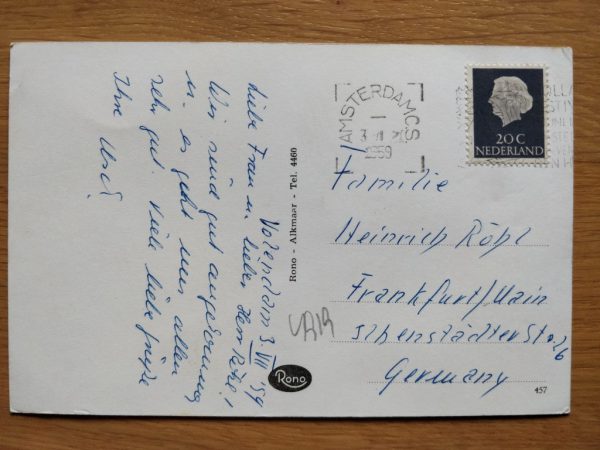 Volendam 3. VII '59
Liebe Frau u. lieber Herr Röhl,
Wir sind gut angekommen
u. es geht uns allen
sehr gut. Viele liebe Grüße
Ihre
Rono - Alkmaar - Tel. 4460
Rono
AMSTERDAM CS
1959
20 C
NEDERLAND
Familie
Heinrich Röhl
Frankfurt/Main
Germany
457